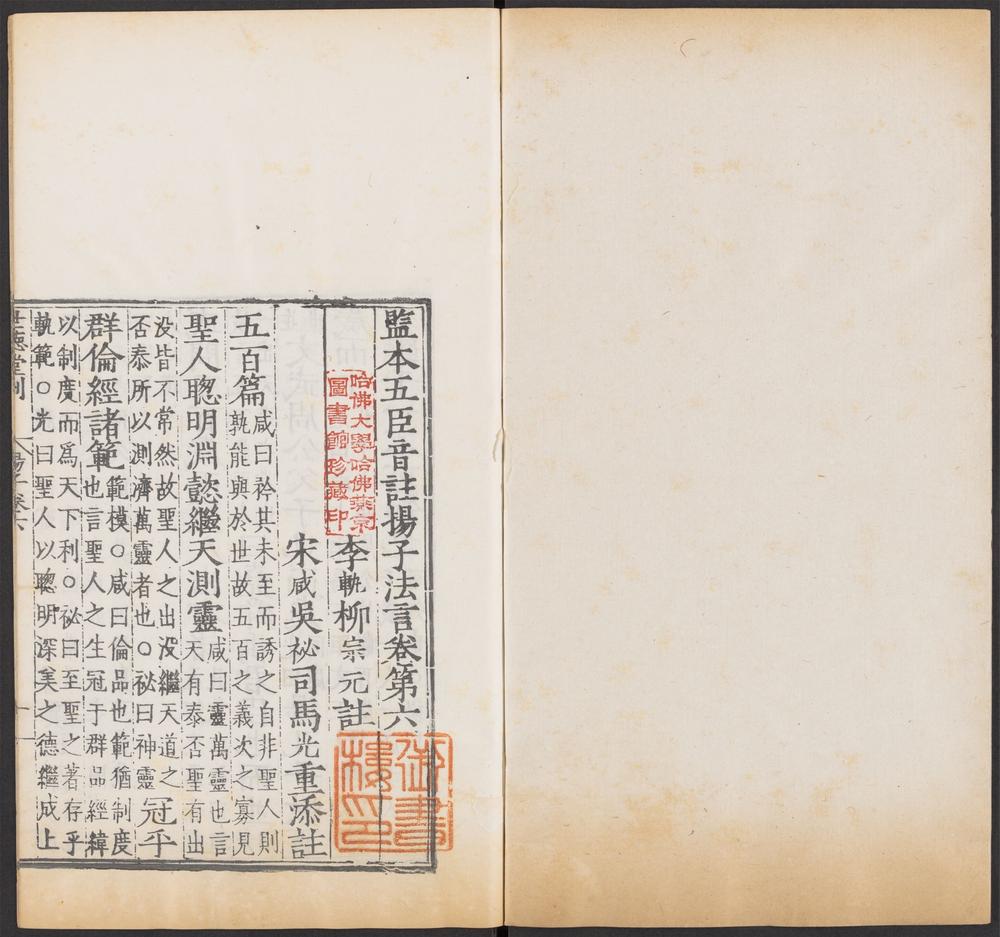 監本五臣音註揚子法言卷第六
李軌柳宗元註
宋咸吳祕司馬光重添註
五百篇
咸曰衿其未至而誘之自非聖人則
孰能與於世故五百之義次之寡見
聖人聰明淵懿繼天測靈
咸曰靈萬靈也言
天有泰否聖有出
没皆不常然故聖人之出没繼天道之
否泰所以測濟萬靈者也○祕曰神靈
冠乎
群倫經諸範
範模○咸曰倫品也範猶制度
也言聖人之生冠于群品經緯
以制度而爲天下利○祕曰至聖之著存乎
軌範○光曰聖人以聰明深美之德繼成上
世德堂刊
揚子卷六
一
哈佛大學哈佛燕京
圖書館珍藏印
御書
樓印